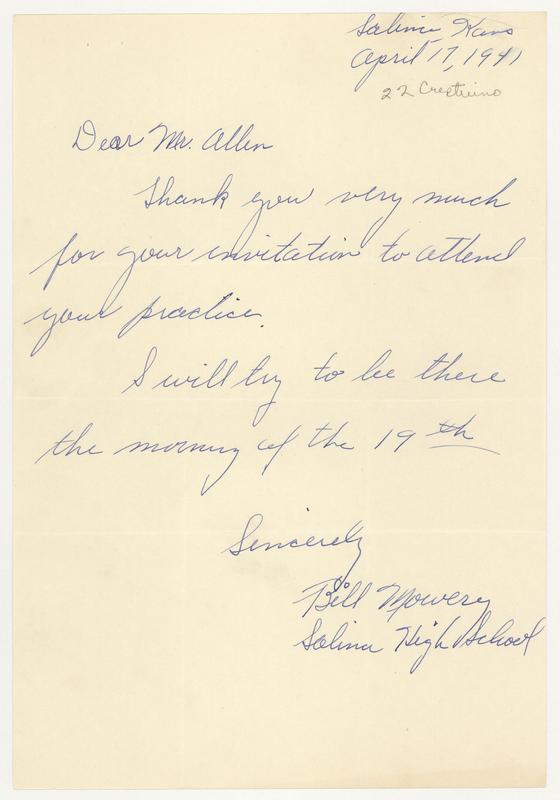 Salina, Kans
April 17, 1941
22 Crestview
Dear Mr. Allen
Thank you very much
for your invitation to attend
your practice.
I will try to be there
the morning of the 19th
Sincerely
Bill Mowery
Salina High School